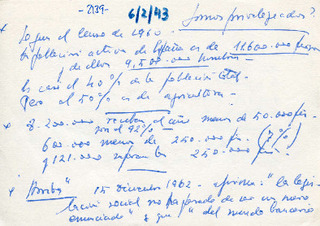 -2139-
6/2/43 Somos privilegiados?
* Según el Censo de 1960 -
la población activa de España es de 11.600.000 personas
y de ellos 9,500.000 hombres
Es casi el 40% de la población total.
Pero el 50% es de agricultura -
* 8.200.000 reciben al año menos de 50.000 pts.
son el 92%
600.000 menos de 250.000 pts. (7%)
y 121.000 superan las 250.000 pts.
* "Arriba" 15 Diciembre 1962 - afirma: "la legis-
lación social no ha pasado de ser un mero
enunciado" y que "del mundo bancario